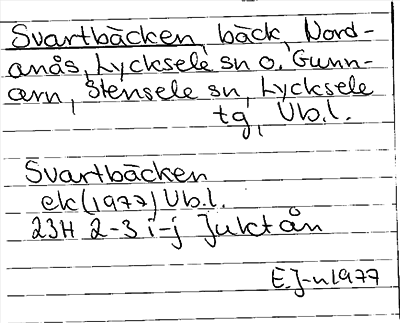 Svartbäcken, bäck, Nord-
anås, Lycksele sn o. Gunn-
arn, Stensele sn, Lycksele
tg, Vb.l.
Svartbäcken
ek (1977) Vb.l.
23H 2-3 i-j Juktån
EJ-n 1977